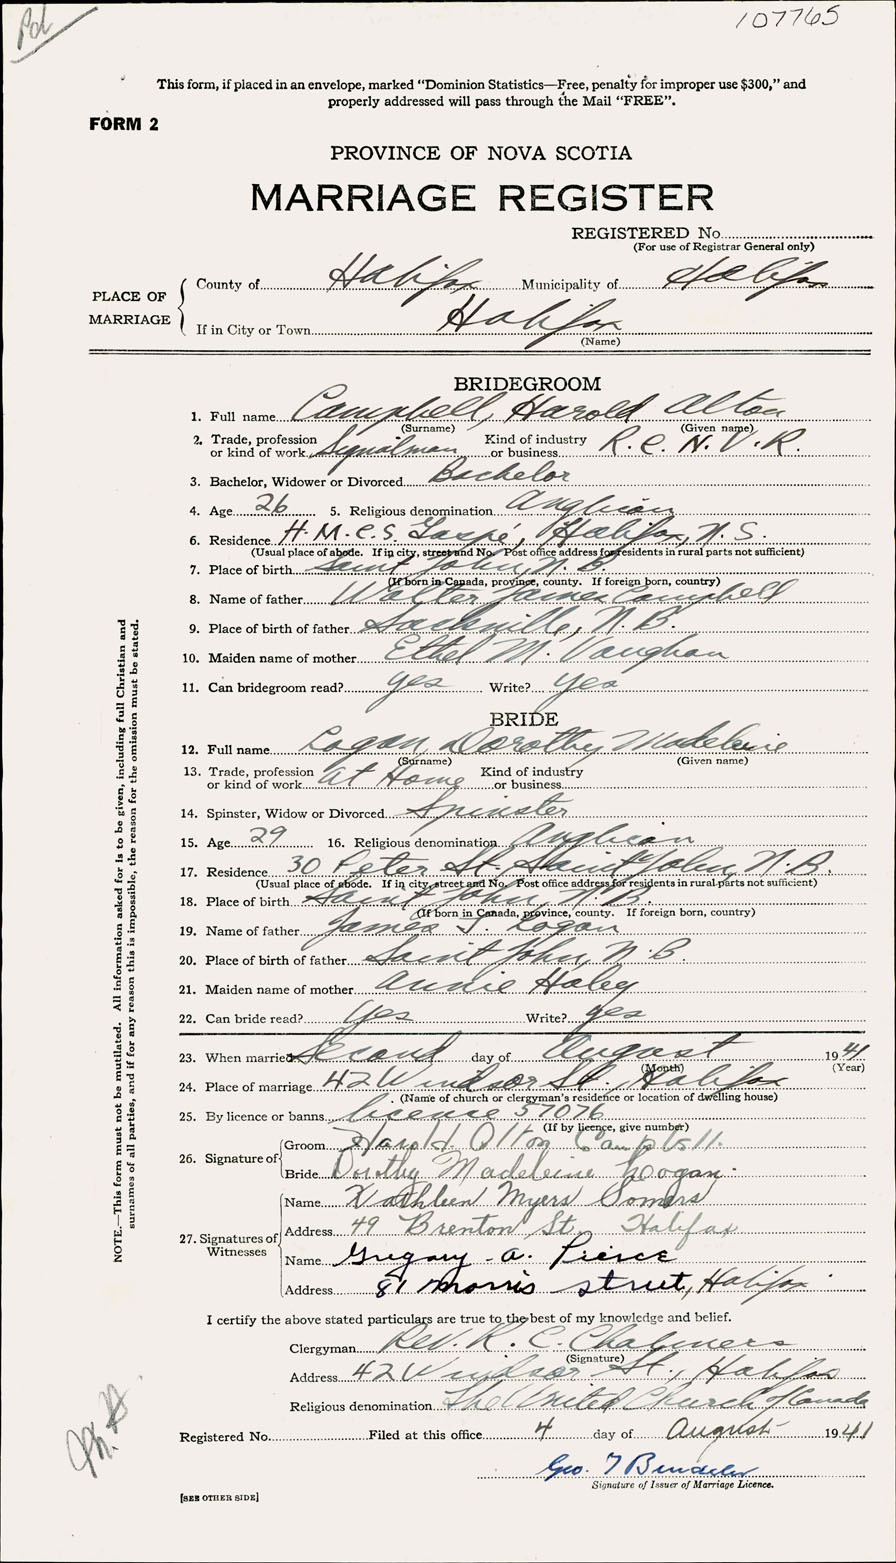 Pd
107765
This form, if placed in an envelope, marked "Dominion Statistics—Free, penalty for improper use $300," and
properly addressed will pass through the Mail "FREE".
FORM 2
PROVINCE OF NOVA SCOTIA
MARRIAGE REGISTER
REGISTERED No.
(For use of Registrar General only)
PLACE OF MARRIAGE
County of Halifax Municipality of Halifax
If in City or Town Halifax
(Name)
BRIDEGROOM
1. Full name Campbell, Harold Alton
(Surname) (Given name)
2. Trade, profession or kind of work Signalman Kind of industry or business R.C.N.V.R.
3. Bachelor, Widower or Divorced Bachelor
4. Age 26 5. Religious denomination Anglican
6. Residence H.M.C.S. Gaspé, Halifax, N.S.
(Usual place of abode. If in city, street and No. Post office address for residents in rural parts not sufficient)
7. Place of birth Saint John, N.B.
(If born in Canada, province, county. If foreign born, country)
8. Name of father Walter James Campbell
9. Place of birth of father Sackville, N.B.
10. Maiden name of mother Ethel M. Vaughan
11. Can bridegroom read? yes Write? yes
BRIDE
12. Full name Logan, Dorothy Madeleine
(Surname) (Given name)
13. Trade, profession or kind of work At Home Kind of industry or business
14. Spinster, Widow or Divorced Spinster
15. Age 29 16. Religious denomination Anglican
17. Residence 30 Peter St. Saint John, N.B.
(Usual place of abode. If in city, street and No. Post office address for residents in rural parts not sufficient)
18. Place of birth Saint John, N.B.
(If born in Canada, province, county. If foreign born, country)
19. Name of father James J. Logan
20. Place of birth of father Saint John, N.B.
21. Maiden name of mother Annie Haley
22. Can bride read? Yes Write? yes
23. When married Second day of August 1941
(Month) (Year)
24. Place of marriage 42 Windsor St., Halifax
(Name of church or clergyman's residence or location of dwelling house)
25. By licence or banns licence 57076
(If by licence, give number)
26. Signature of Groom Harold Alton Campbell.
Bride Dorothy Madeleine Logan.
27. Signatures of Witnesses
Name Kathleen Myers Somers
Address 49 Brenton St. Halifax
Name Gregory A. Pierce
Address 81 Morris Street, Halifax
I certify the above stated particulars are true to the best of my knowledge and belief.
Clergyman Rev. R. C. Chalmers
(Signature)
Address 42 Windsor St., Halifax
Religious denomination The United Church of Canada
Registered No. Filed at this office 4 day of August 1941
Geo. T
Signature of Issuer of Marriage Licence.
[SEE OTHER SIDE]
NOTE.—This form must not be mutilated. All information asked for is to be given, including full Christian and
surnames of all parties, and if for any reason this is impossible, the reason for the omission must be stated.